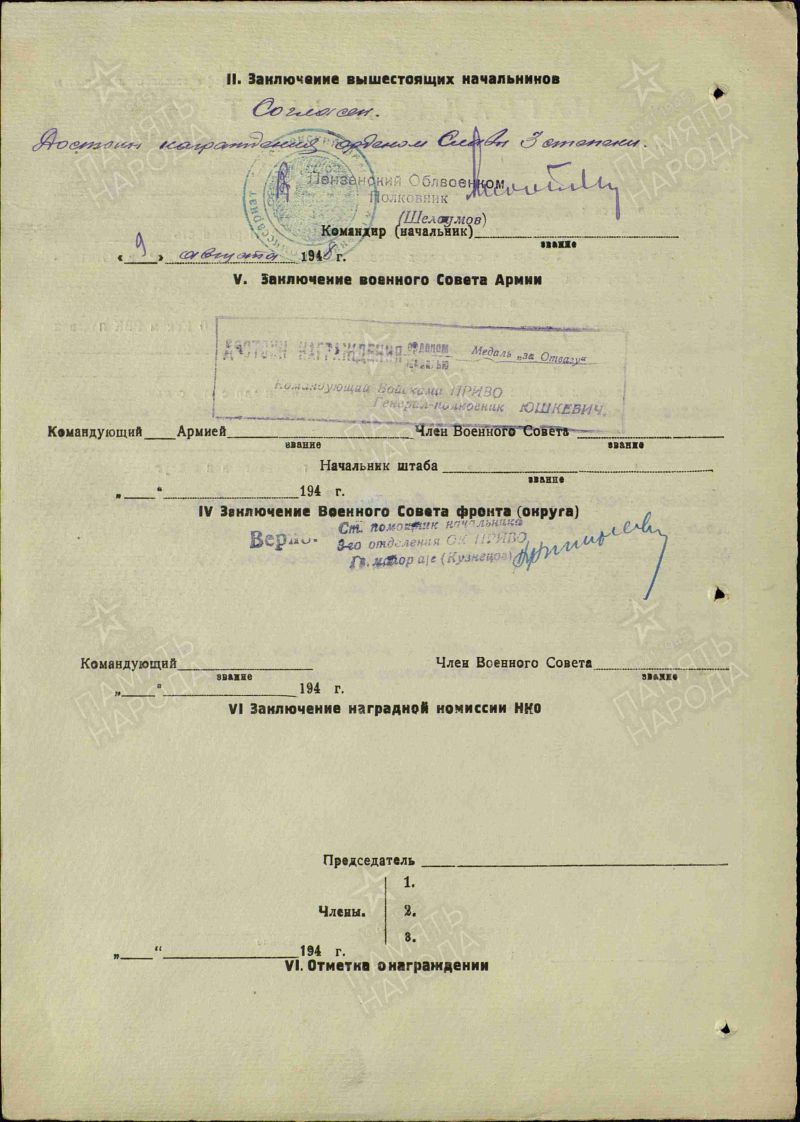 II. Заключение вышестоящих начальников
Согласен.
Достоин награждения орденом Славы 3 степени.
Пензенский Облвоенком
Полковник
(Шелаумов)
Командир (начальник)
звание
« 9 » августа 1948 г.
V. Заключение военного Совета Армии
орденом
Медаль „за Отвагу“
Командующий Войсками ПРИВО
Генерал-полковник ЮШКЕВИЧ.
Командующий Армией Член Военного Совета
звание звание
Начальник штаба
звание
„ “ 194 г.
IV Заключение Военного Совета фронта (округа)
Верно:
Ст. помощник начальника
3-го отделения ОК ПРИВО
Гв. майор а/с (Кузнецов)
Командующий Член Военного Совета
звание звание
„ “ 194 г.
VI Заключение наградной комиссии НКО
Председатель
1.
Члены. 2.
3.
„ “ 194 г.
VI. Отметка о награждении
ПАМЯТЬ
НАРОДА